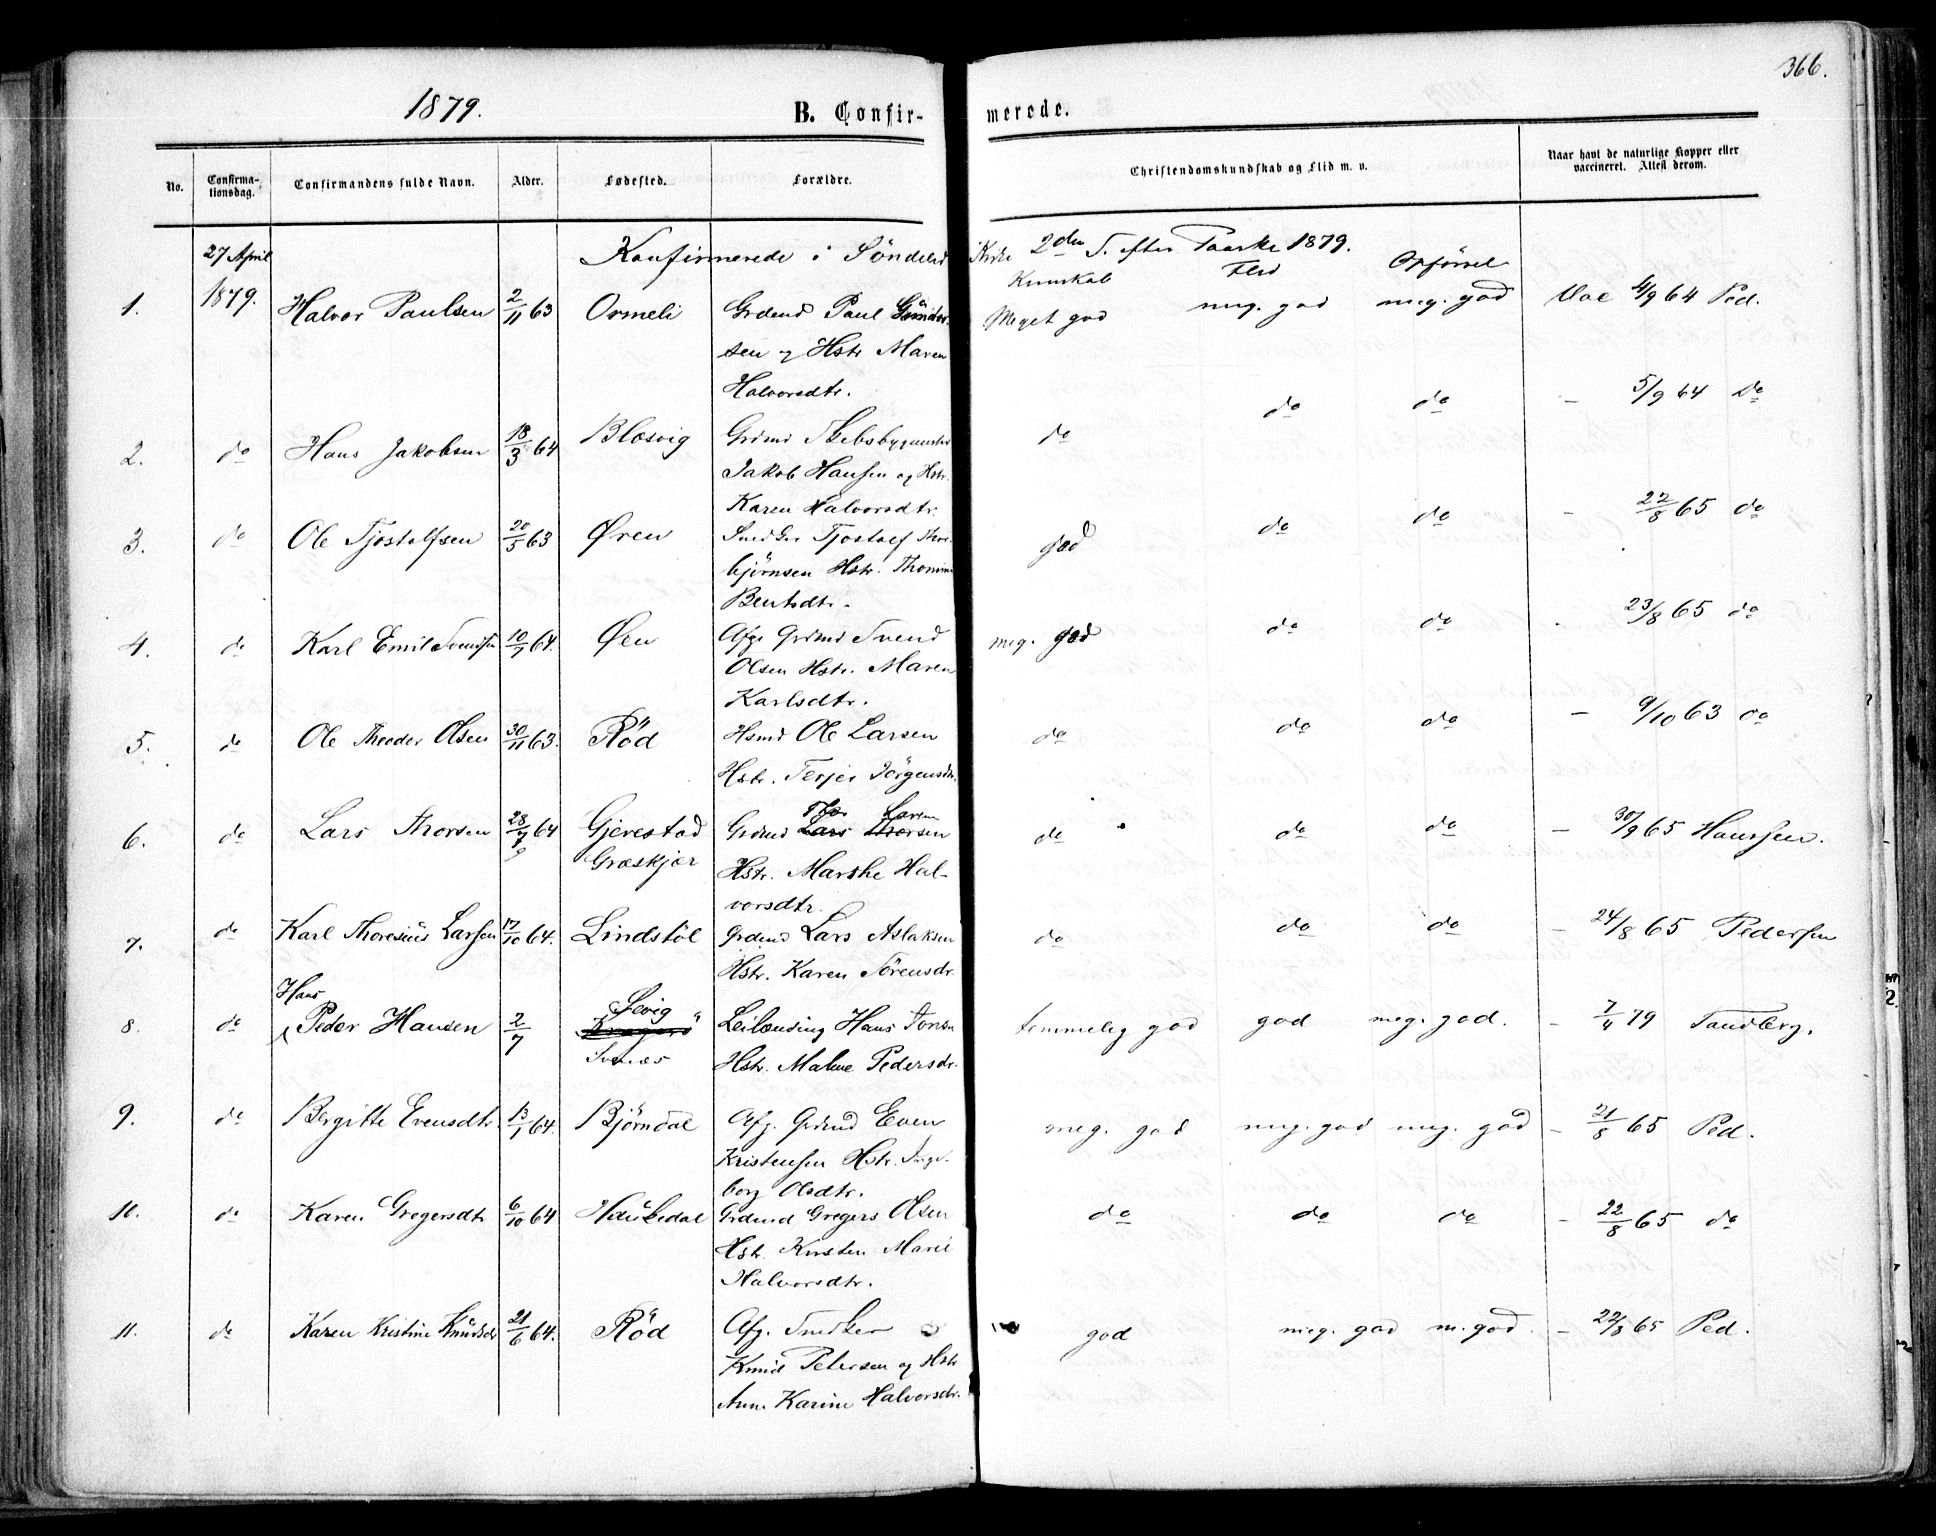 366.
1879.
B. Confir-
merede.
No.
Confirma-
tionsdag.
Confirmandens fulde Navn.
Alder.
Fødested.
Forældre.
Christendomskundskab og Flid m. v.
Naar havt de naturlige Kopper eller
vaccineret. Attest derom.
27 April
1879.
Konfirmerede i Söndeled Kirke 2den S. efter Paaske 1879.
Kunskab Flid Opförsel
1. Halvor Paulsen 2/11 63 Ormeli Grdmd Paul Gunder- Meget god meg. god meg. god Vac 4/9 64 Ped.
sen og Hstr Maren
Halvorsdtr.
2. do Hans Jakobsen 18/3 64 Blæsvig Grdmd Skibsbygmester do do do – 5/9 64 Do
Jakob Hansen og Hstr.
Karen Halvorsdtr.
3. do Ole Tjostolfsen 20/5 63 Øren Snedker Tjostolf Thor- god do do – 22/8 65 do
björnsen Hstr. Thomine
Bentsdtr.
4. do Karl Emil Svendsen 10/7 64. Øen Afg. Grdmd Svend meg. god do do 23/8 65 do
Olsen Hstr. Maren
Karlsdtr.
5. do Ole Theodor Olsen 30/11 63. Röd Hsmd Ole Larsen do do do – 9/10 63 do
Hstr. Terjer Jörgensdtr.
6. do Lars Thorsen 28/9 64 Gjerestad Grdmd Lars Thorsen do do do – 30/9 65 Hanssen.
Thor Larsen
Græskjær Hstr. Marthe Hal-
vorsdtr.
7. do Karl Thoresius Larsen 17/10 64. Lindstöl Grdmd Lars Aslaksen do do do – 24/8 65 Pedersen
Hstr. Karen Sörensdr.
Hans
8. do Peder Hansen 2/7 Sevig Leilænding Hans temmelig god god meg. god. – 7/4 79 Sandberg.
Kragerö
Hstr. Malene Pedersdr.
9. do Bergitte Evensdtr. 13/1 64. Björndal Afg. Grdmd Even meg. god meg. god meg. god – 21/8 65 Ped.
Kristensen Hstr. Inge-
borg Olsdtr.
10. do Karen Gregersdtr 6/10 64 Haukedal Grdmd Gregers Olsen do do do – 22/8 65 do
Hstr. Kirsten Marie
Halvorsdtr.
11. do Karen Kristine Knudsdr 21/6 64. Röd Afg. Snedker god meg. god m. god. – 22/8 65 Ped.
Knud Petersen og Hstr
Anne Karine Halvorsdr.